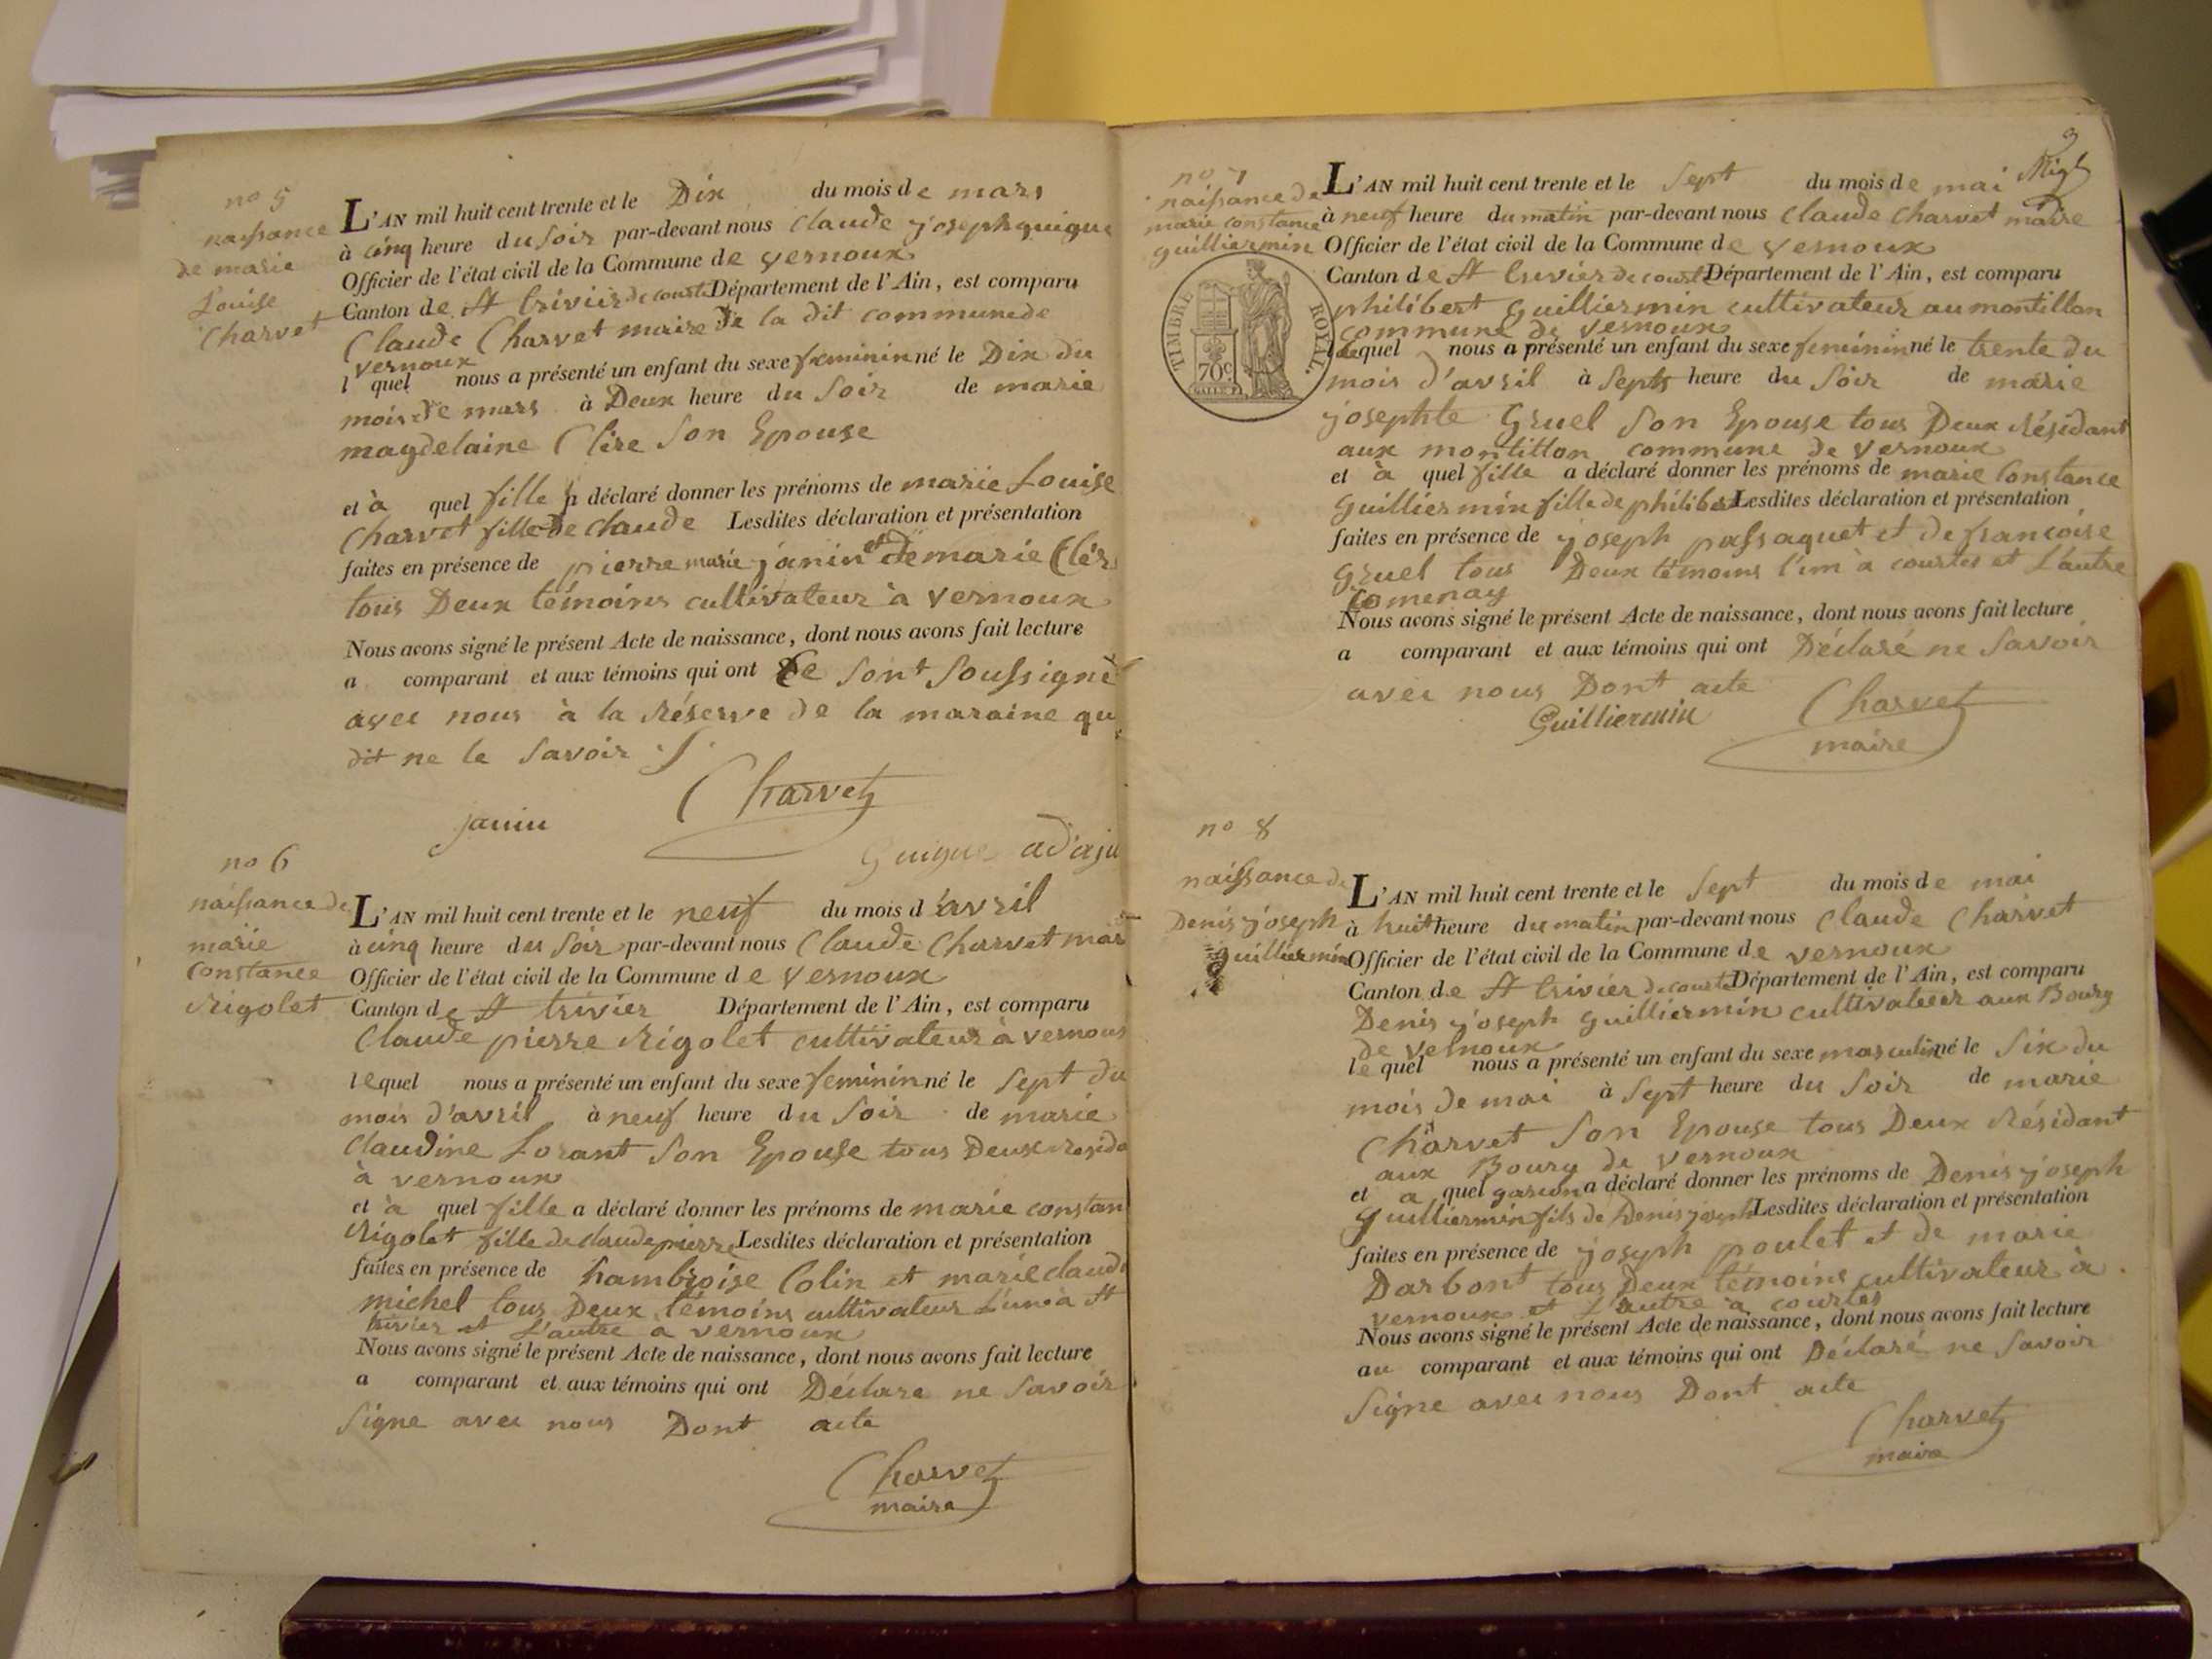 no 5
naissance
de marie
Louise
Charvet
L'AN mil huit cent trente et le Dix du mois de mars
à cinq heure du soir par-devant nous Claude joseph guigue
Officier de l'état civil de la Commune de vernoux
Canton de St trivier de courte Département de l'Ain, est comparu
Claude Charvet maire de la dit commune de
vernoux
l quel nous a présenté un enfant du sexe feminin né le Dix du
mois de mars à Deux heure du Soir de marie
magdelaine Clere Son Epouse
et à quel fille a déclaré donner les prénoms de marie Louise
Charvet fille de Claude Lesdites déclaration et présentation
faites en présence de pierre marie janin et de marie Cler
tous Deux témoins cultivateur à vernoux
Nous avons signé le présent Acte de naissance, dont nous avons fait lecture
a comparant et aux témoins qui ont Se Sont Soussigné
avec nous à la Réserve de la maraine qu
dit ne le Savoir
Charvet
janin
Guigue adaju
no 6
naissance de
marie
Constance
Rigolet
L'AN mil huit cent trente et le neuf du mois d'avril
à cinq heure du Soir par-devant nous Claude Charvet mar
Officier de l'état civil de la Commune de vernoux
Canton de St trivier Département de l'Ain, est comparu
Claude pierre Rigolet cultivateur à vernoux
lequel nous a présenté un enfant du sexe feminin né le Sept du
mois d'avril à neuf heure du Soir de marie
Claudine Lorant Son Epouse tous Deux Resida
à vernoux
et à quel fille a déclaré donner les prénoms de marie constan
Rigolet fille de claude pierre Lesdites déclaration et présentation
faites en présence de hambroise Colin et marie claud
michel tous Deux témoins cultivateur L'un à St
trivier et L'autre à vernoux
Nous avons signé le présent Acte de naissance, dont nous avons fait lecture
a comparant et aux témoins qui ont Déclare ne Savoir
Signe avec nous Dont acte
Charvet
maire
3
no 7
naissance de
marie constance
guilliermin
TIMBRE ROYAL
70c
L'AN mil huit cent trente et le Sept du mois de mai
à neuf heure du matin par-devant nous Claude Charvet maire
Officier de l'état civil de la Commune de vernoux
Canton de St trivier de courte Département de l'Ain, est comparu
philibert Guilliermin cultivateur au montillon
commune de vernoux
lequel nous a présenté un enfant du sexe feminin né le trente du
mois d'avril à Sept heure du Soir de marie
josephte Gruel Son Epouse tous Deux Résidant
aux montillon commune de vernoux
et à quel fille a déclaré donner les prénoms de marie Constance
Guilliermin fille de philibert Lesdites déclaration et présentation
faites en présence de joseph passaquet et de francoise
Gruel tous Deux témoins l'un à courtes et L'autre
Nous avons signé le présent Acte de naissance, dont nous avons fait lecture
a comparant et aux témoins qui ont Déclaré ne Savoir
avec nous Dont acte
Guilliermin Charvet
maire
no 8
naissance de
Denis joseph
guilliermin
L'AN mil huit cent trente et le Sept du mois de mai
à huit heure du matin par-devant nous Claude Charvet
Officier de l'état civil de la Commune de vernoux
Canton de St trivier de courte Département de l'Ain, est comparu
Denis joseph guilliermin cultivateur aux Bourg
de vernoux
lequel nous a présenté un enfant du sexe masculin né le Six du
mois de mai à Sept heure du Soir de marie
Charvet Son Epouse tous Deux Résidant
aux Bourg de vernoux
et a quel garson a déclaré donner les prénoms de Denis joseph
Guilliermin fils de Denis joseph Lesdites déclaration et présentation
faites en présence de joseph poulet et de marie
Darbont tous Deux témoins cultivateur à
vernoux et L'autre à courtes
Nous avons signé le présent Acte de naissance, dont nous avons fait lecture
au comparant et aux témoins qui ont Déclaré ne Savoir
Signe avec nous Dont acte
Charvet
maire